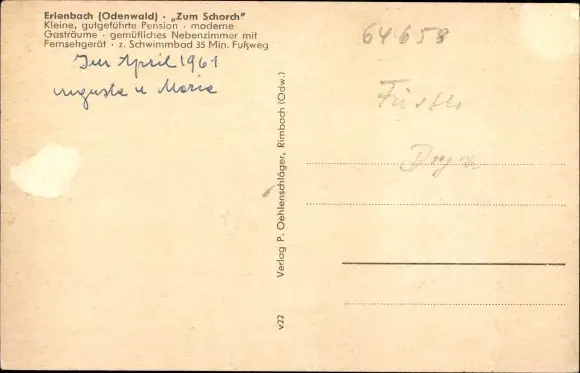 Erlenbach (Odenwald) · „Zum Schorch"
Kleine, gutgeführte Pension · moderne
Gasträume · gemütliches Nebenzimmer mit
Fernsehgerät · z. Schwimmbad 35 Min. Fußweg
Im April 1961
Augusta u Maria
64658
Verlag P. Oehlenschläger, Rimbach (Odw.)
v22